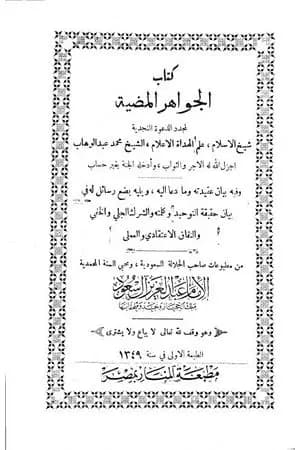 كتاب
الجواهر المضية
لمجدد الدعوة النجدية
شيخ الاسلام، علم الهداة الاعلام، الشيخ محمد عبد الوهاب
اجزل الله له الاجر والثواب، وأدخله الجنة بغير حساب
وفيه بيان عقيدته وما دعا اليه، ويليه بضع رسائل له في
بيان حقيقة التوحيد وكلمته والشرك الجلي والخفي
والنفاق الاعتقادي والعملي
من مطبوعات صاحب الجلالة السعودية، ومحيي السنة المحمدية
الإمام عبد العزيز آل سعود
وهو وقف لله تعالى لا يباع ولا يشترى
الطبعة الاولى في سنة ١٣٤٩
مطبعة المنار بمصر